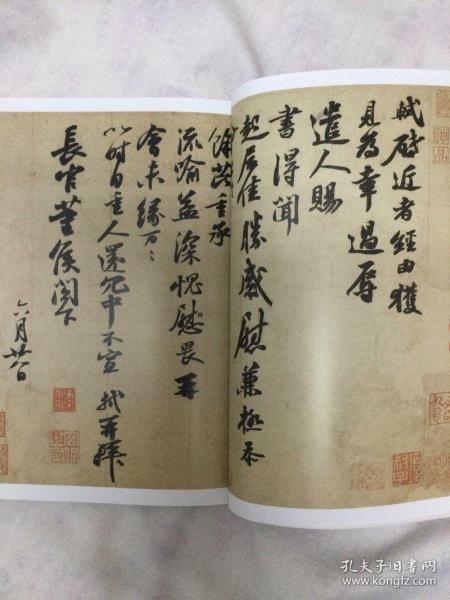 軾啓近者經由獲
見為幸過辱
遣人賜
書得聞
起居佳勝感慰兼極忝
餘芘重承
流喻益深愧畏再
會未緣萬〻
以時自重人還冗中不宣軾再拜
長官董侯閣下
六月廿八日
孔夫子旧书网
www.kongfz.com